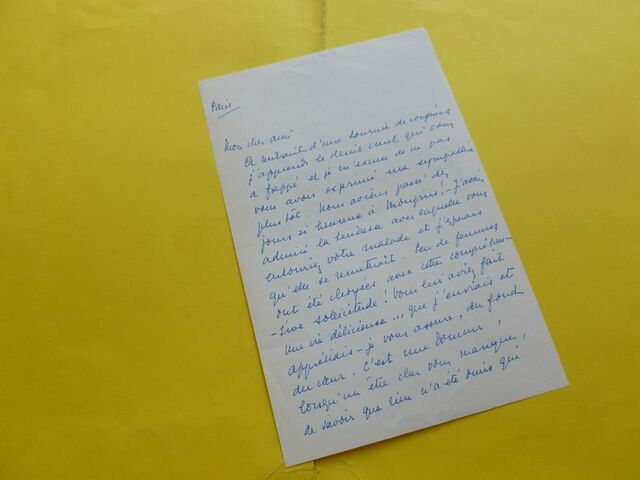 Paris
Mon cher ami
De retour d'une tournée de
j'apprends le deuil cruel qui vous
a frappé et je m'excuse de ne pas
vous avoir exprimé ma sympathie
plus tôt. Nous avions passé des
jours si heureux à Mougins! J'avais
admiré la tendresse avec laquelle vous
entouriez votre malade et j'espérais
qu'elle se remettrait. Peu de femmes
ont été choyées avec cette compréhen-
-sive sollicitude! Vous lui aviez fait
une vie délicieuse... que j'enviais et
appréciais - je vous assure, du fond
du cœur. C'est une douceur,
lorsqu'un être cher vous manque,
de savoir que rien n'a été omis qui